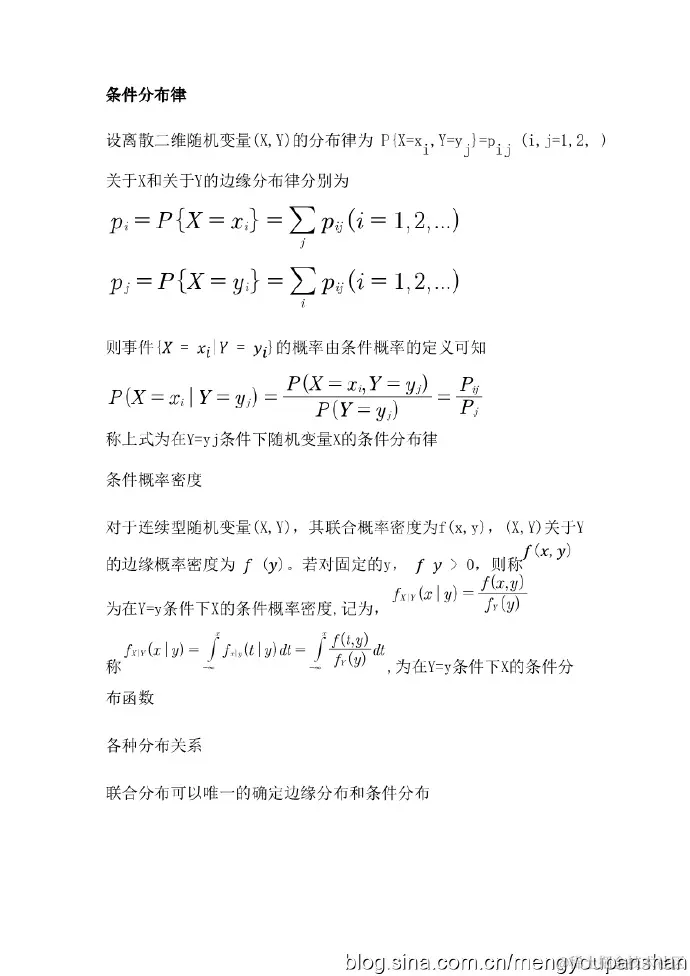 条件分布律
设离散二维随机变量(X,Y)的分布律为 P{X=x_i,Y=y_j}=p_ij (i,j=1,2, )
关于X和关于Y的边缘分布律分别为
p_i = P{X = x_i} = ∑_j p_ij (i = 1,2,...)
p_j = P{X = y_i} = ∑_i p_ij (i = 1,2,...)
则事件{X = x_i|Y = y_i}的概率由条件概率的定义可知
P(X = x_i | Y = y_j) = P(X = x_i, Y = y_j) / P(Y = y_j) = P_ij / P_j
称上式为在Y=yj条件下随机变量X的条件分布律
条件概率密度
对于连续型随机变量(X,Y)，其联合概率密度为f(x,y)，(X,Y)关于Y
的边缘概率密度为 f (y)。若对固定的y， f y > 0，则称 f(x,y)
为在Y=y条件下X的条件概率密度,记为， f_X|Y(x | y) = f(x,y) / f_Y(y)
称 f_X|Y(x | y) = ∫_{-∞}^{x} f_x|y(t | y) dt = ∫_{-∞}^{x} f(i,y) / f_Y(y) dt ,为在Y=y条件下X的条件分
布函数
各种分布关系
联合分布可以唯一的确定边缘分布和条件分布
blog.sina.com.cn/mengyoupanshan